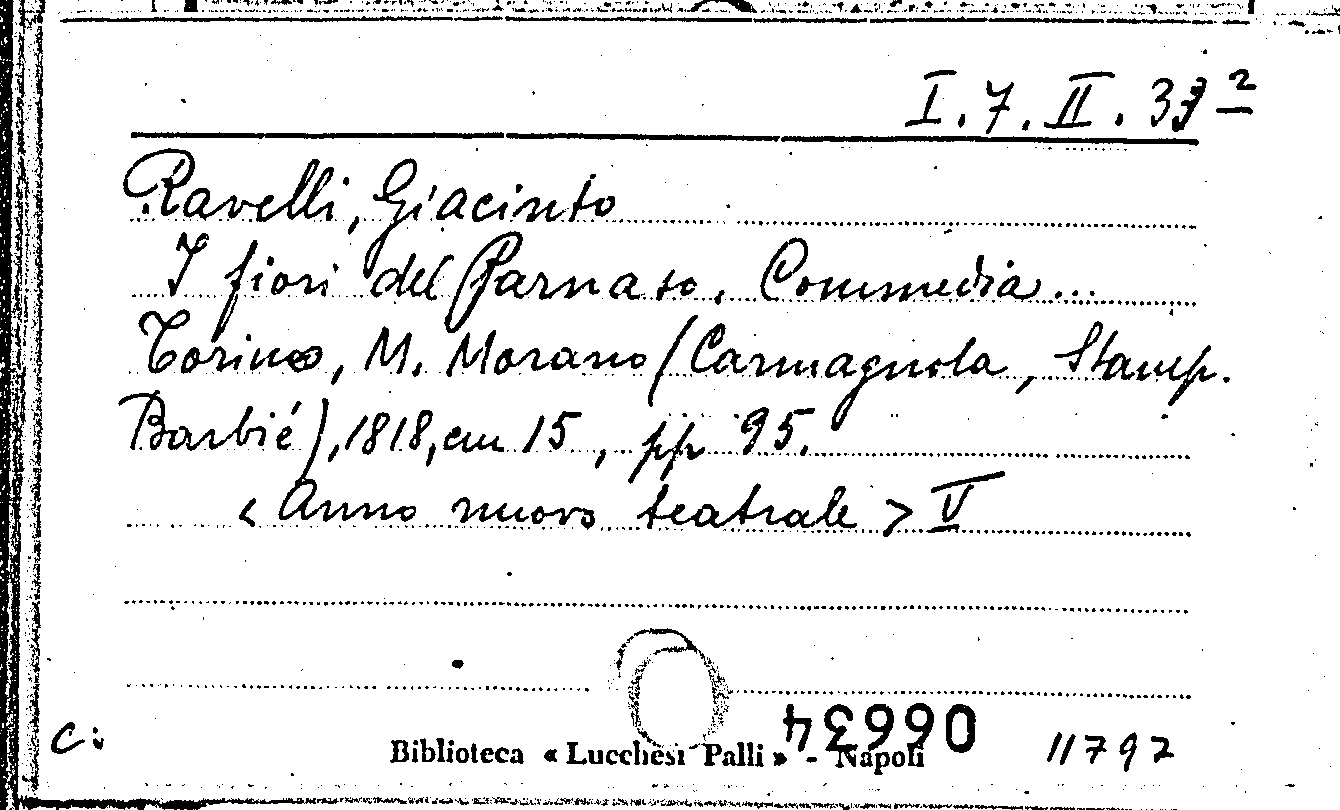 I.7.II.33 2
Ravelli, Giacinto
I fiori del Parnaso. Commedia...
Torino, M. Morano (Carmagnola, Stamp.
Barbié), 1818, cm 15, pp 95.
< Anno nuovo teatrale > V
06634
c:
Biblioteca « Lucchesi Palli » - Napoli
11792